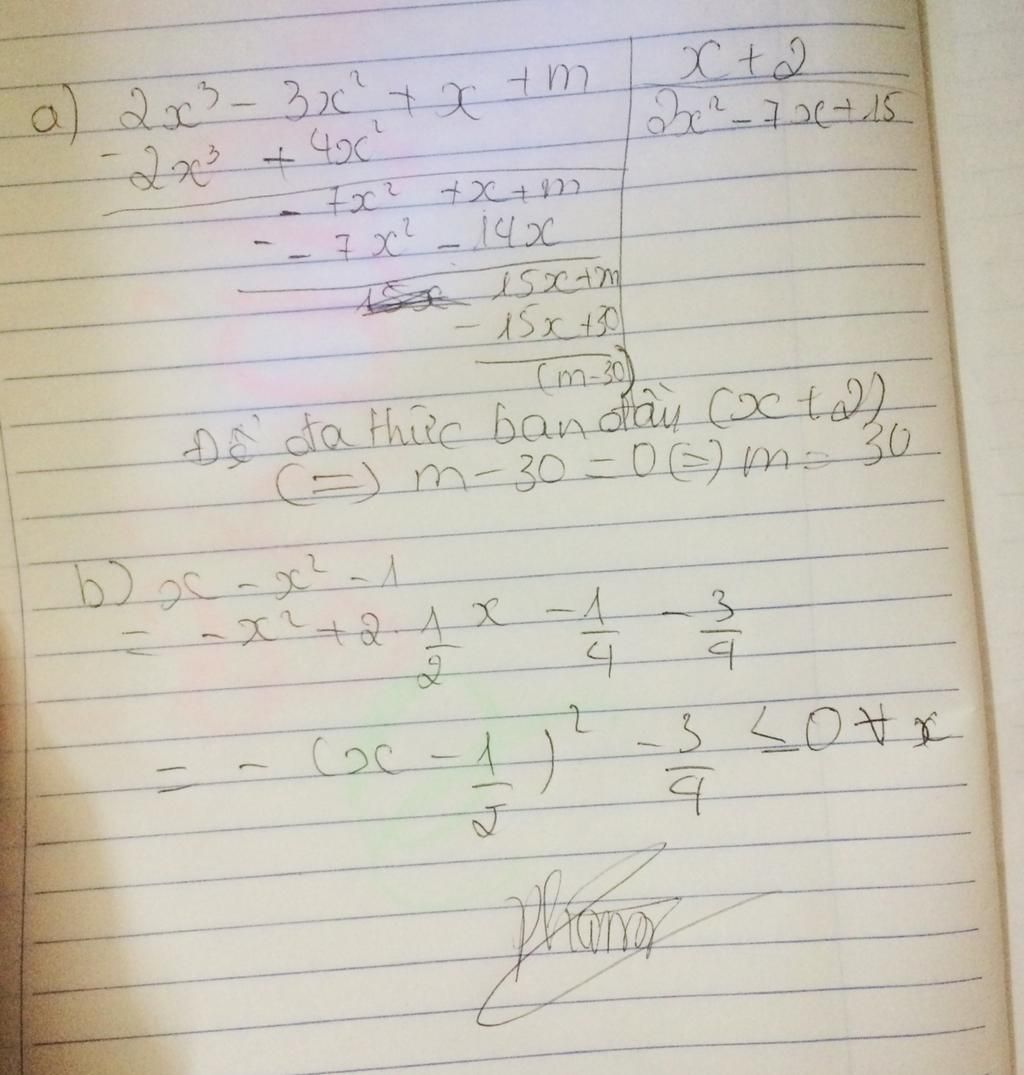 a) 2x³ - 3x² + x + m | x + 2
- 2x³ + 4x² | 2x² - 7x + 15
- 7x² + x + m
- - 7x² - 14x
15x + m
- 15x + 30
(m - 30)
Để đa thức ban đầu (x + 2)
(=) m - 30 = 0 (=) m = 30
b) x - x² - 1
= - x² + 2 . 1/2 x - 1/4 - 3/4
= - (x - 1/2)² - 3/4 ≤ 0 ∀ x